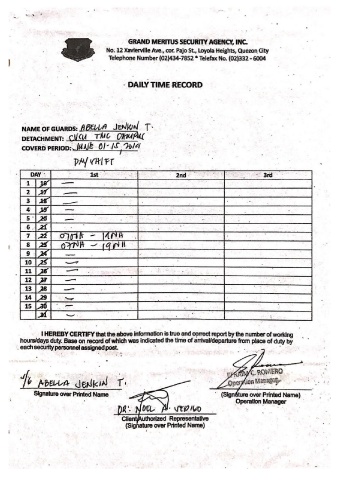 GRAND MERITUS SECURITY AGENCY, INC.
No. 12 Xavierville Ave., cor. Pajo St., Loyola Heights, Quezon City
Telephone Number (02)434-7852 * Telefax No. (02)332 - 6004
DAILY TIME RECORD
NAME OF GUARDS: ABELLA JENKIN T.
DETACHMENT: CVSU TMC CAMPUS
COVERD PERIOD: JUNE 01-15,
DAY SHIFT
DAY 1st 2nd 3rd
1 16 —
2 17 —
3 18 —
4 19 —
5 20 —
6 21
7 22 07NH - 19NH
8 23 07NH - 19NH
9 24 —
10 25 —
11 26 —
12 27 —
13 28 —
14 29 —
15 30 —
31 —
I HEREBY CERTIFY that the above information is true and correct report by the number of working
hours/days duty. Base on record of which was indicated the time of arrival/departure from place of duty by
each security personnel assigned post.
C. ROMERO
Operation Manager
S/G ABELLA JENKIN T.
Signature over Printed Name
(Signature over Printed Name)
Operation Manager
DR. NOEL A.
Client/Authorized Representative
(Signature over Printed Name)